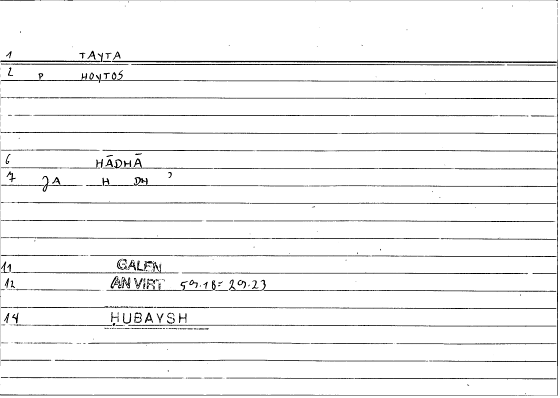 1 TAYTA
2 P HOYTOS
6 HĀDHĀ
7 JA H DH ʾ
11 GALEN
12 AN VIRT 59.18 = 29.23
14 ḤUBAYSH